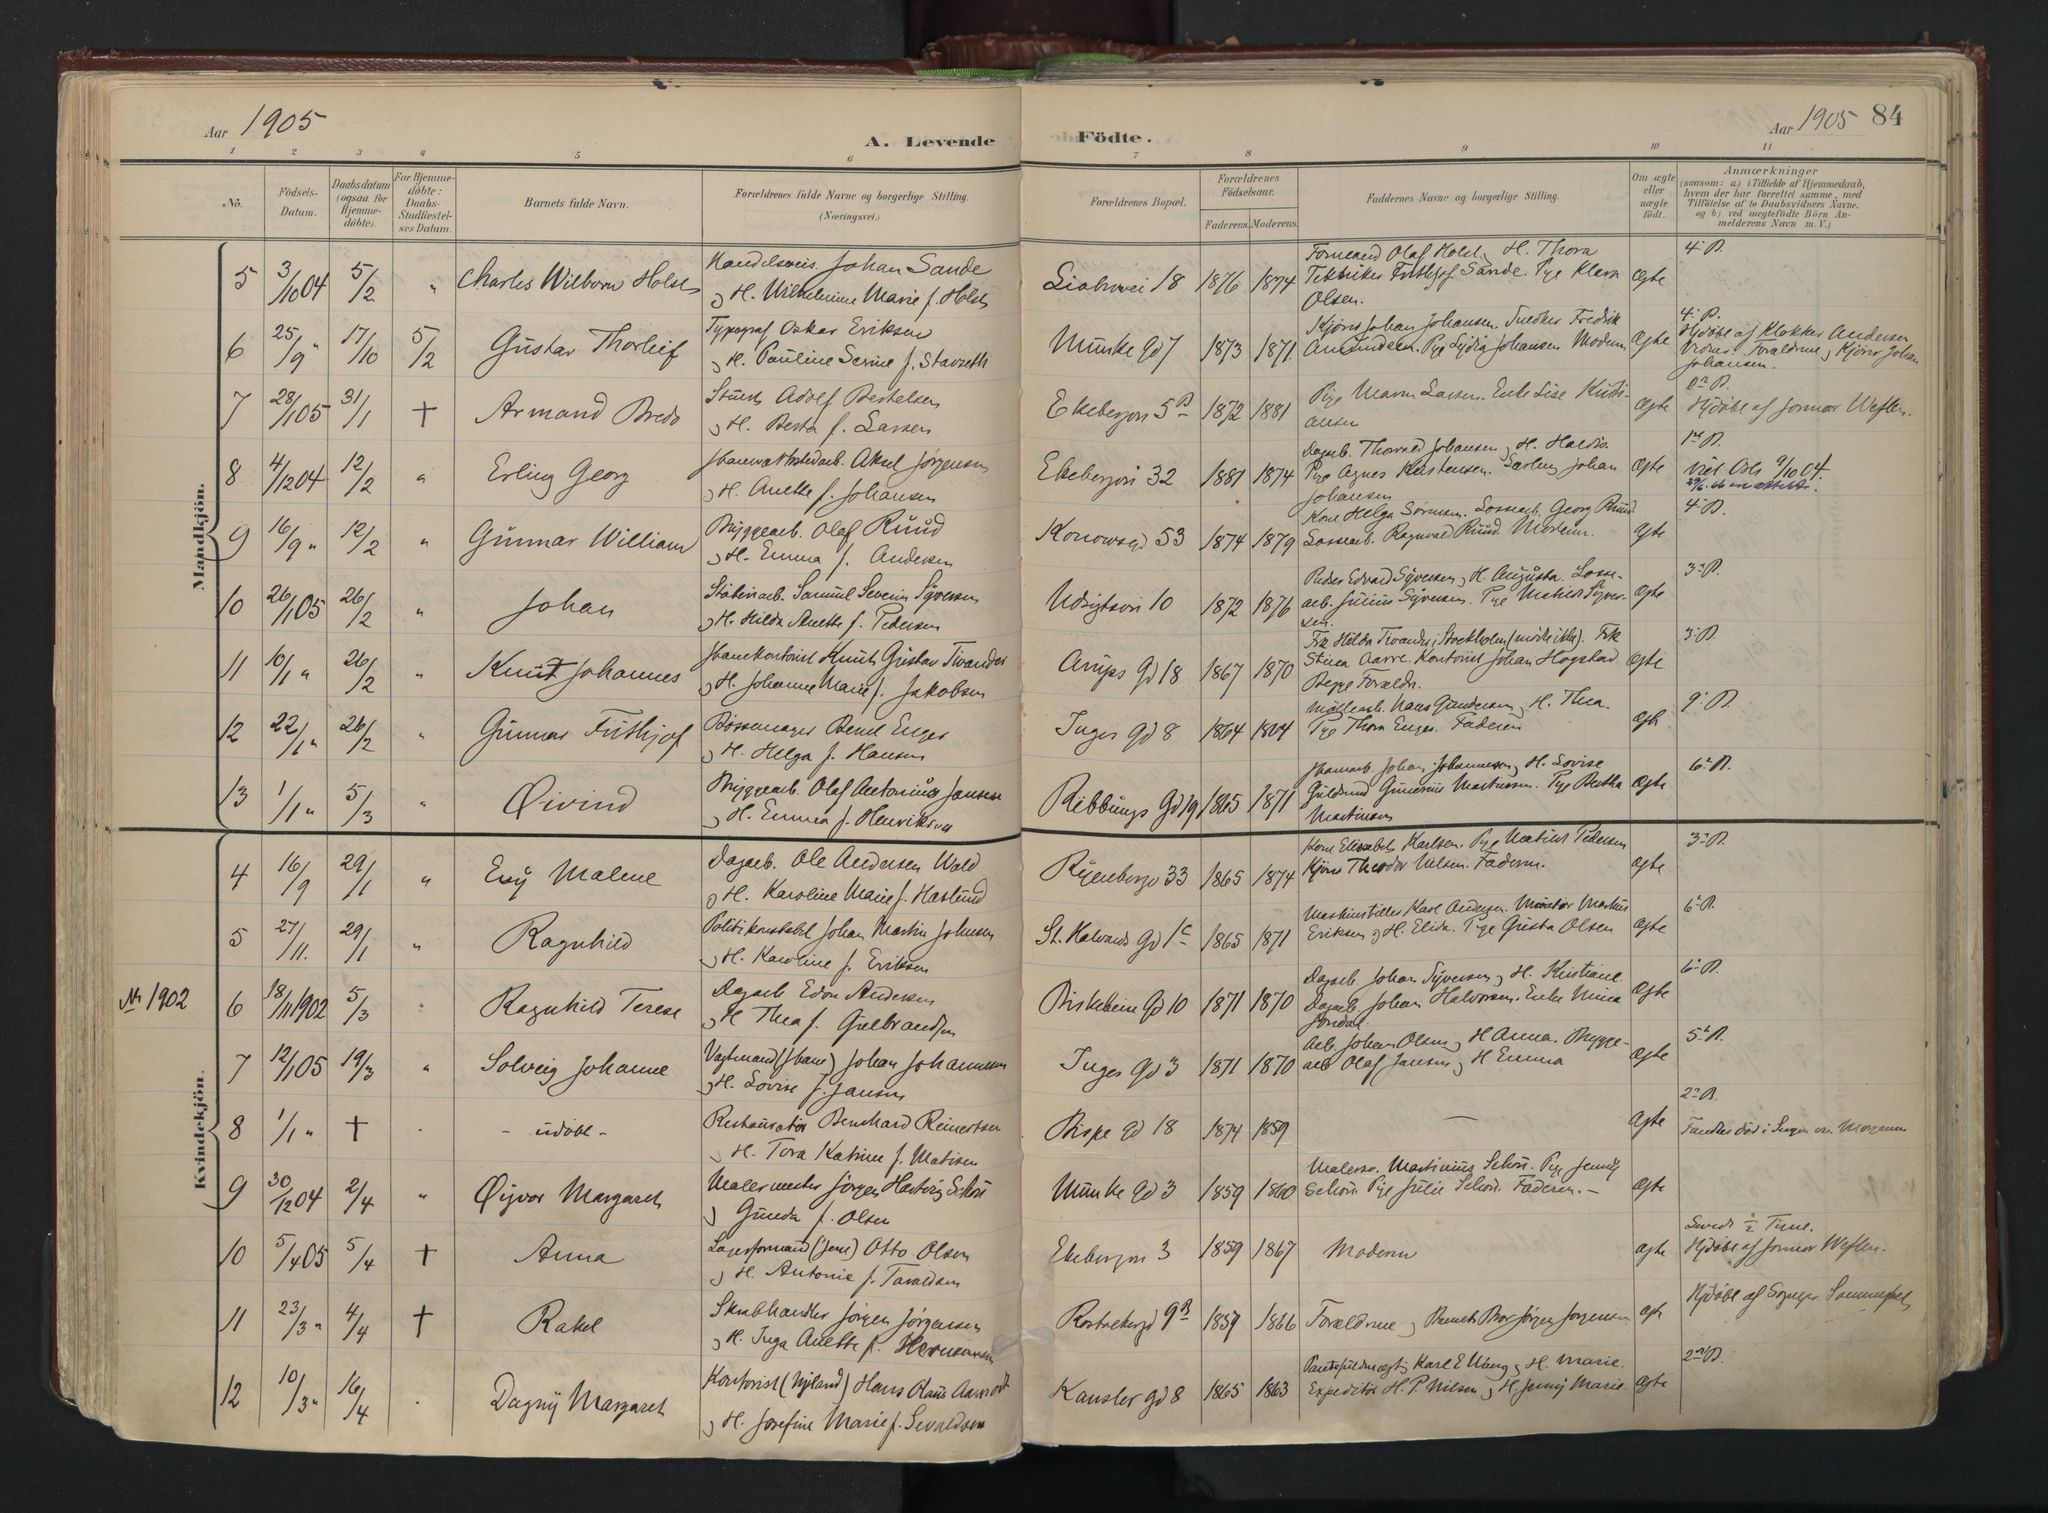 Aar 1905
A. Levende
Födte.
Aar 1905
84
1 2 3 4 5 6 7 8 9 10 11
No.
Födsels-
Datum.
Daabsdatum
(ogsaa for
Hjemme-
döbte).
For Hjemme-
döbte:
Daabs-
Stadfæstel-
ses Datum.
Barnets fulde Navn.
Forældrenes fulde Navne og borgerlige Stilling.
(Næringsvei.)
Forældrenes Bopæl.
Forældrenes
Födselsaar.
Faderens. Moderens.
Faddernes Navne og borgerlige Stilling.
Om ægte
eller
uægte
födt.
Anmærkninger
(saasom: a) i Tilfælde af Hjemmedaab,
hvem der har forrettet samme, med
Tilföielse af to Daabsvidners Navne,
og b) ved uægtefödte Börn An-
melderens Navn m. V.)
Mandkjön.
5 3/10 04 5/2 " Charles Wilborn Holst
Johan Sande
H. Wilhelmine Marie f. Holst
18 1876 1874
Formand Olaf Holst, H. Thora
Tekniker Frithjof Sande. Pge Klara
Olsen.
ægte 4. B.
6 25/9 " 17/10 5/2 Gustav Thorleif
Typograf Oskar Eriksen
H. Pauline Serine f.
Munke gd 7 1873 1871
Johan Johansen. Fredrik
Amundsen. Pge Lydia Johansen Modern
ægte 4. B.
Hjdøbt af Klokker Andersen
Vidner: Forældrene, Kjører Johan
Johansen.
7 28/1 05 31/1 + Armand
Adolf Bertelsen
H. Berta f. Larsen
Ekebergvei 5 B 1872 1881
Pge Larsen. Enke Lise Kristi-
ansen
ægte
Hjdøbt af Jormor Weflen.
8 4/12 04 12/2 " Erling Georg
Aksel Jørgensen
H. Anette f. Johansen
Ekebergvei 32 1881 1874
Dagarb. Thorvald Johansen, H.
Pge Agnes Kristensen. Johan
Johansen
ægte 1ste B.
viet Oslo 9/10 04.
9 16/9 " 12/2 " Gunnar William
Bryggearb. Olaf Ruud
H. Emma f. Andersen
Konowsgd 53 1874 1879
Kone Helga Sørensen. Lossearb. Georg Ruud
Lossearb. Ragnvald Ruud. Modern.
ægte 4. B.
10 26/1 05 26/2 " Johan
Samuel Severin Syversen
H. Hilda Anette f. Pedersen
Udsigtsvei 10 1872 1876
Edvard Syversen, H. Augusta. Losse-
arb. Julius Syversen. Pge Mathilde Syver-
sen.
ægte 3. B.
11 10/1 " 26/2 " Knut Johannes
Knut Gustav Tivander
H. Johanne Marie f. Jakobsen
Arups Gd 18 1867 1870
Frk Hilda Tivander, Stockholm (mødte ikke). Frk
Stina Aarre. Kontorist Johan Hogstad
Begge Forældr.
ægte 3. B.
12 22/1 " 26/2 " Gunnar Frithjof
Bøssemager Bernt Enger
H. Helga f. Hansen
Inges Gd 8 1864
Møllearb. Hans Gundersen, H. Thea.
Pge Thora Enger. Faderen
ægte 9. B.
13 1/1 " 5/3 " Øivind
Bryggearb. Olaf Antonius Jansen
H. Emma f. Henriksen
Ribbungs Gd 19 1865 1871
Johan Johannesen, H. Lovise
Guldsmd Gunerius Martinsen. Pge Bertha
Martinsen
ægte 6. B.
Kvindekjön.
4 16/9 29/1 " Malene
Dagarb. Ole Andersen Wold
H. Karoline Marie f. Haslund
Ryenbergv 33 1865 1874
Kone Elisabeth Karlsen. Pge Mathilde Pedersen
Kjører Theodor Nilsen. Faderen.
ægte 3. B.
5 27/11. 29/1 " Ragnhild
Politikonstabel Johan Martin Johnsen
H. Karoline f. Eriksen
St. Halvards Gd 1c 1865 1871
Karl Andersen. Montør Markus
Eriksen, H. Elida. Pge Gusta Olsen
ægte 6. B.
No 1902
6 18/11 1902 5/3 Ragnhild Terese
Dagarb Edon Andersen
H Thea f. Gulbrandsen
Birkebeine Gd 10 1871 1870
Dagarb Johan Syversen, H. Kristiane
Dagarb Johan Halvorsen. Enke Mina
ægte 6. B.
7 12/1 05 19/3 " Solveig Johanne
Vagtmand (Jbane) Johan Johannesen
H. Lovise f. Jansen
Inges Gd 3 1871 1870
Arb. Johan Olsen, H Anna. Brygge-
arb Olaf Jansen, H Emma
ægte 5. B.
8 1/1 " + - udøbt -
Restauratør Bernhard Reinertsen
H. Tora Katrine f. Matisen
Bispe gd 18 1874 1859
—
ægte 2. B.
Fandtes død i Sengen om Morgenen
9 30/12 04 2/4 " Øyvor Margareth
Malermester Jørgen Hartvig Schou
Gunda f. Olsen
Munke gd 3 1859 1860
Malersv. Martinius Schou. Pge Jenny
Schou Pge Julie Schou. Faderen. —
ægte
10 5/4 05 5/4 + Anna
Lagerformand (Jern) Otto Olsen
H. Antonie f. Taraldsen
Ekebergvei 3 1859 1867
Modern
ægte
Levede 1/2 Time.
Hjdøbt af Jormor Weflen.
11 23/3 " 4/4 + Rakel
Skrabhandler Jørgen Jørgensen
H. Inga Anette f. Hermansen
9 B 1859 1866
Forældrene, Barnets Bror Jørgen Jørgensen
ægte
Hjdøbt af Sognepr. Sommerfeldt
12 10/3 " 16/4 . Dagny Margareth
Kontorist (Nyland) Hans Klaus Aamodt
H. Josefine Marie f. Sevaldsen
Kansler gd 8 1865 1863
Karl E Wang, H. Marie.
Expeditør H. P. Nilsen, H. Jenny Marie
ægte 2. B.